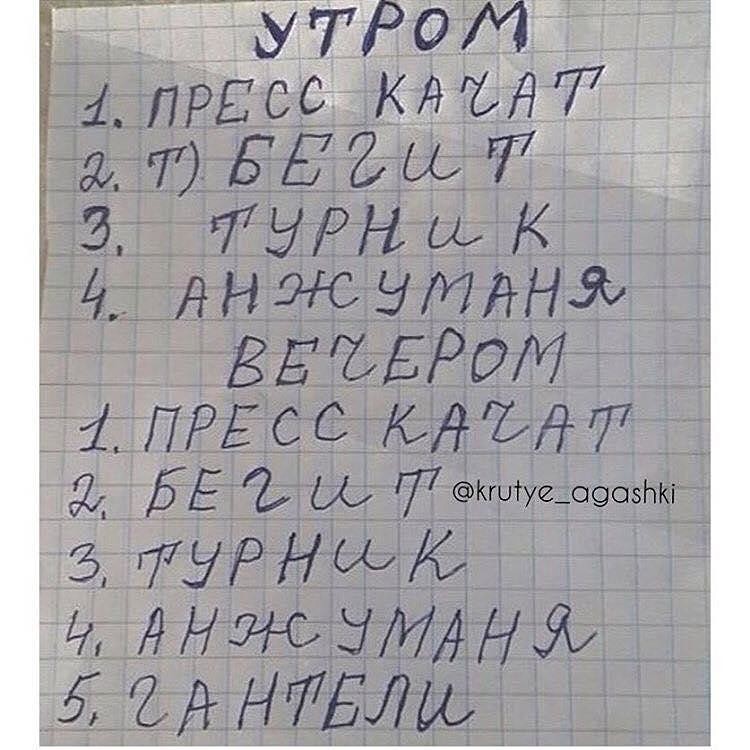 УТРОМ
1. ПРЕСС КАЧАТ
2. Т) БЕГИТ
3. ТУРНИК
4. АНЖУМАНЯ
ВЕЧЕРОМ
1. ПРЕСС КАЧАТ
2. БЕГИТ @krutye_agashki
3. ТУРНИК
4. АНЖУМАНЯ
5. ГАНТЕЛИ